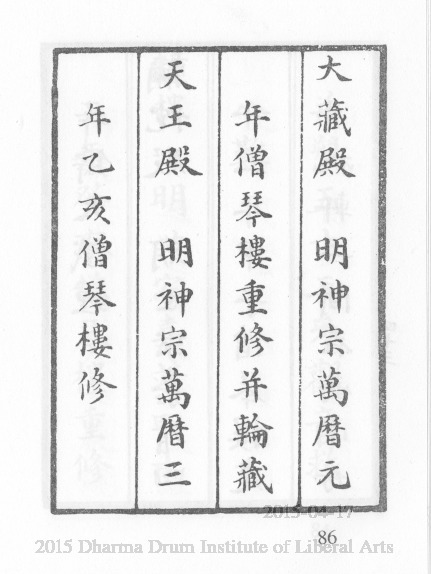 大藏殿　明神宗萬曆元
年僧琴樓重修并輪藏
天王殿　明神宗萬曆三
年乙亥僧琴樓修
2015-04-17
86
2015 Dharma Drum Institute of Liberal Arts